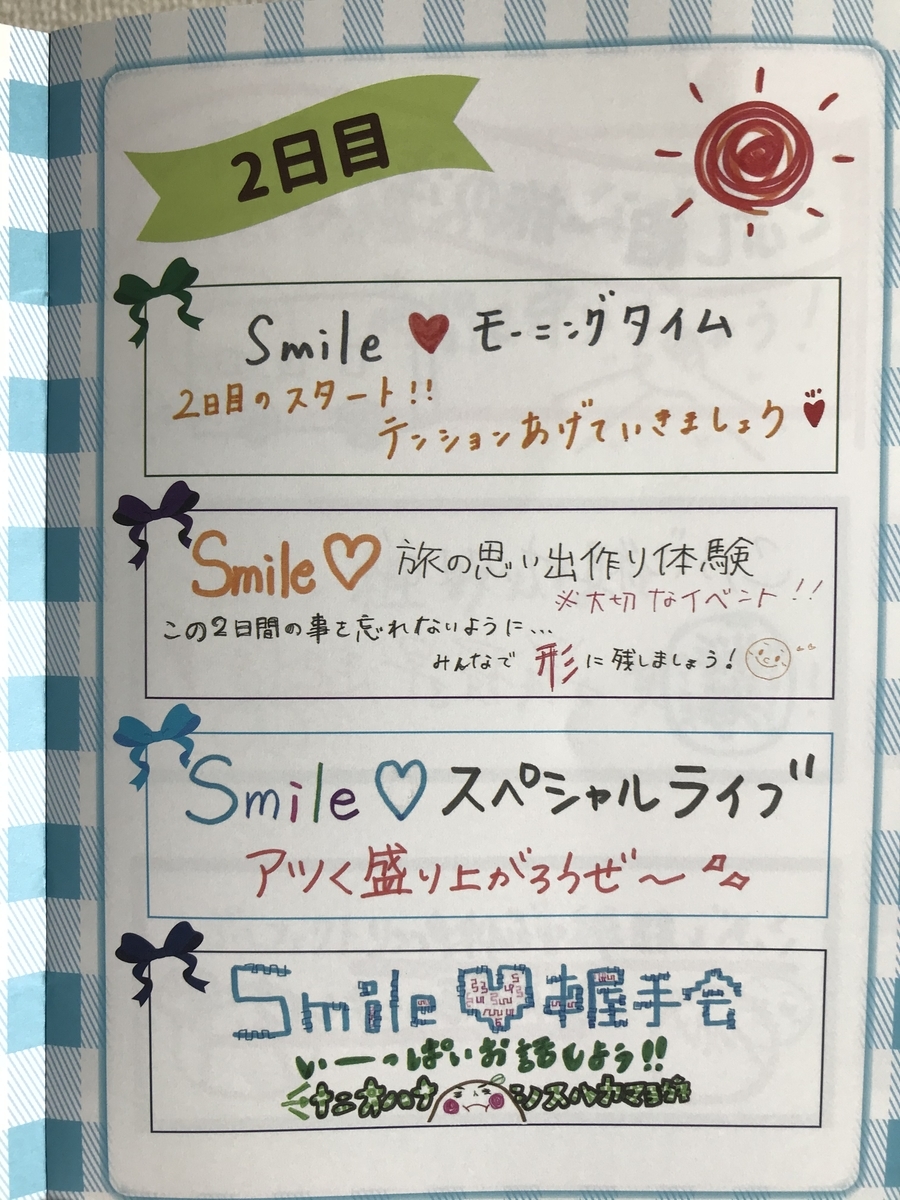 2日目
Smile♥モーニングタイム
2日目のスタート!!
テンションあげていきましょウ
Smile♡旅の思い出作り体験
※大切なイベント!!
この2日間の事を忘れないように...
みんなで形に残しましょう!
Smile♡スペシャルライブ
アツく盛り上がろうぜ〜
Smile♡握手会
いーっぱいお話しよう!!
ナニオハナシスルカマヨウ